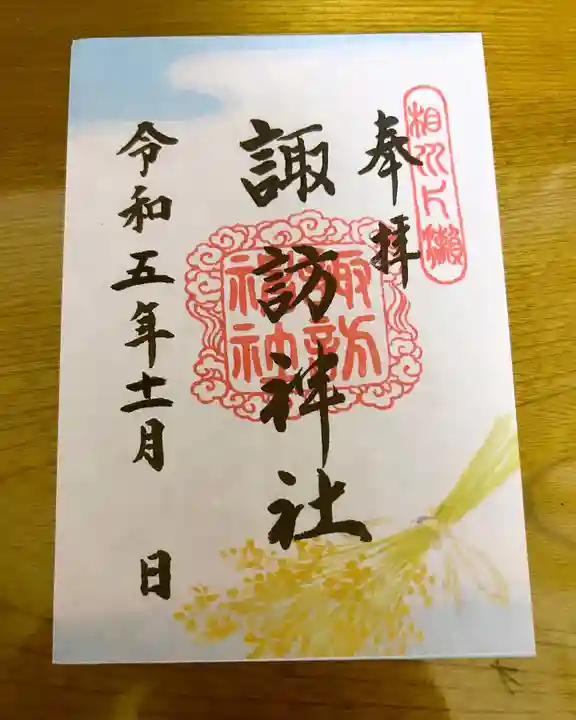 相州片瀬
奉拝
諏訪神社
諏訪神社
令和五年十一月 日